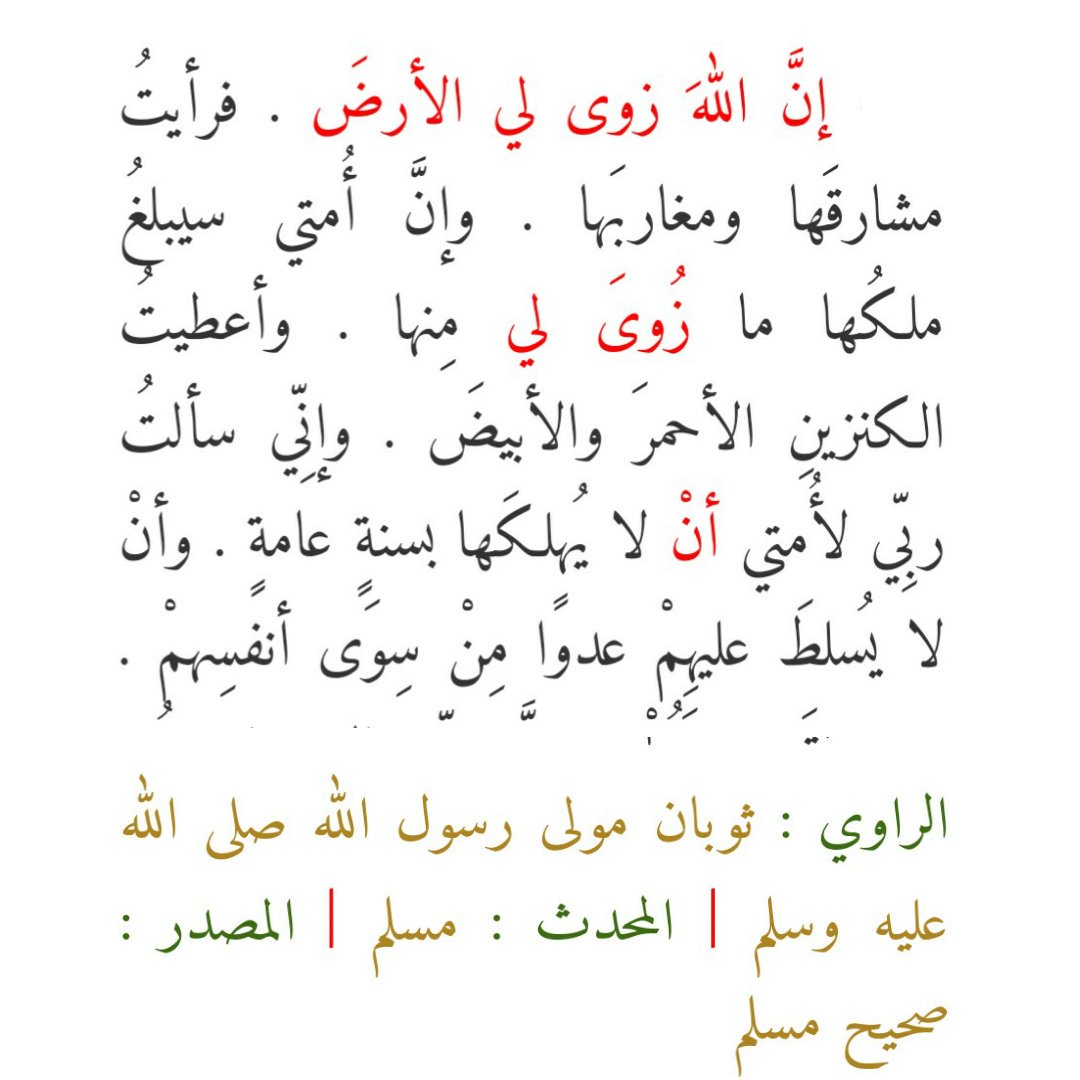 إنَّ اللهَ زوى لي الأرضَ . فرأيتُ
مشارقَها ومغاربَها . وإنَّ أُمتي سيبلغُ
ملكُها ما زُوىَ لي مِنها . وأعطيتُ
الكنزينِ الأحمرَ والأبيضَ . وإنِّي سألتُ
ربِّي لأُمتي أنْ لا يُهلكَها بسنةٍ عامةٍ . وأنْ
لا يُسلطَ عليهِمْ عدوًا مِنْ سِوَى أنفسِهمْ .
الراوي : ثوبان مولى رسول الله صلى الله
عليه وسلم | المحدث : مسلم | المصدر :
صحيح مسلم